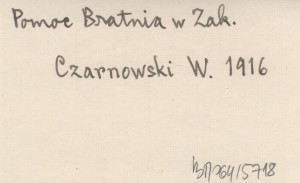 Pomoc Bratnia w Zak.
Czarnowski W. 1916